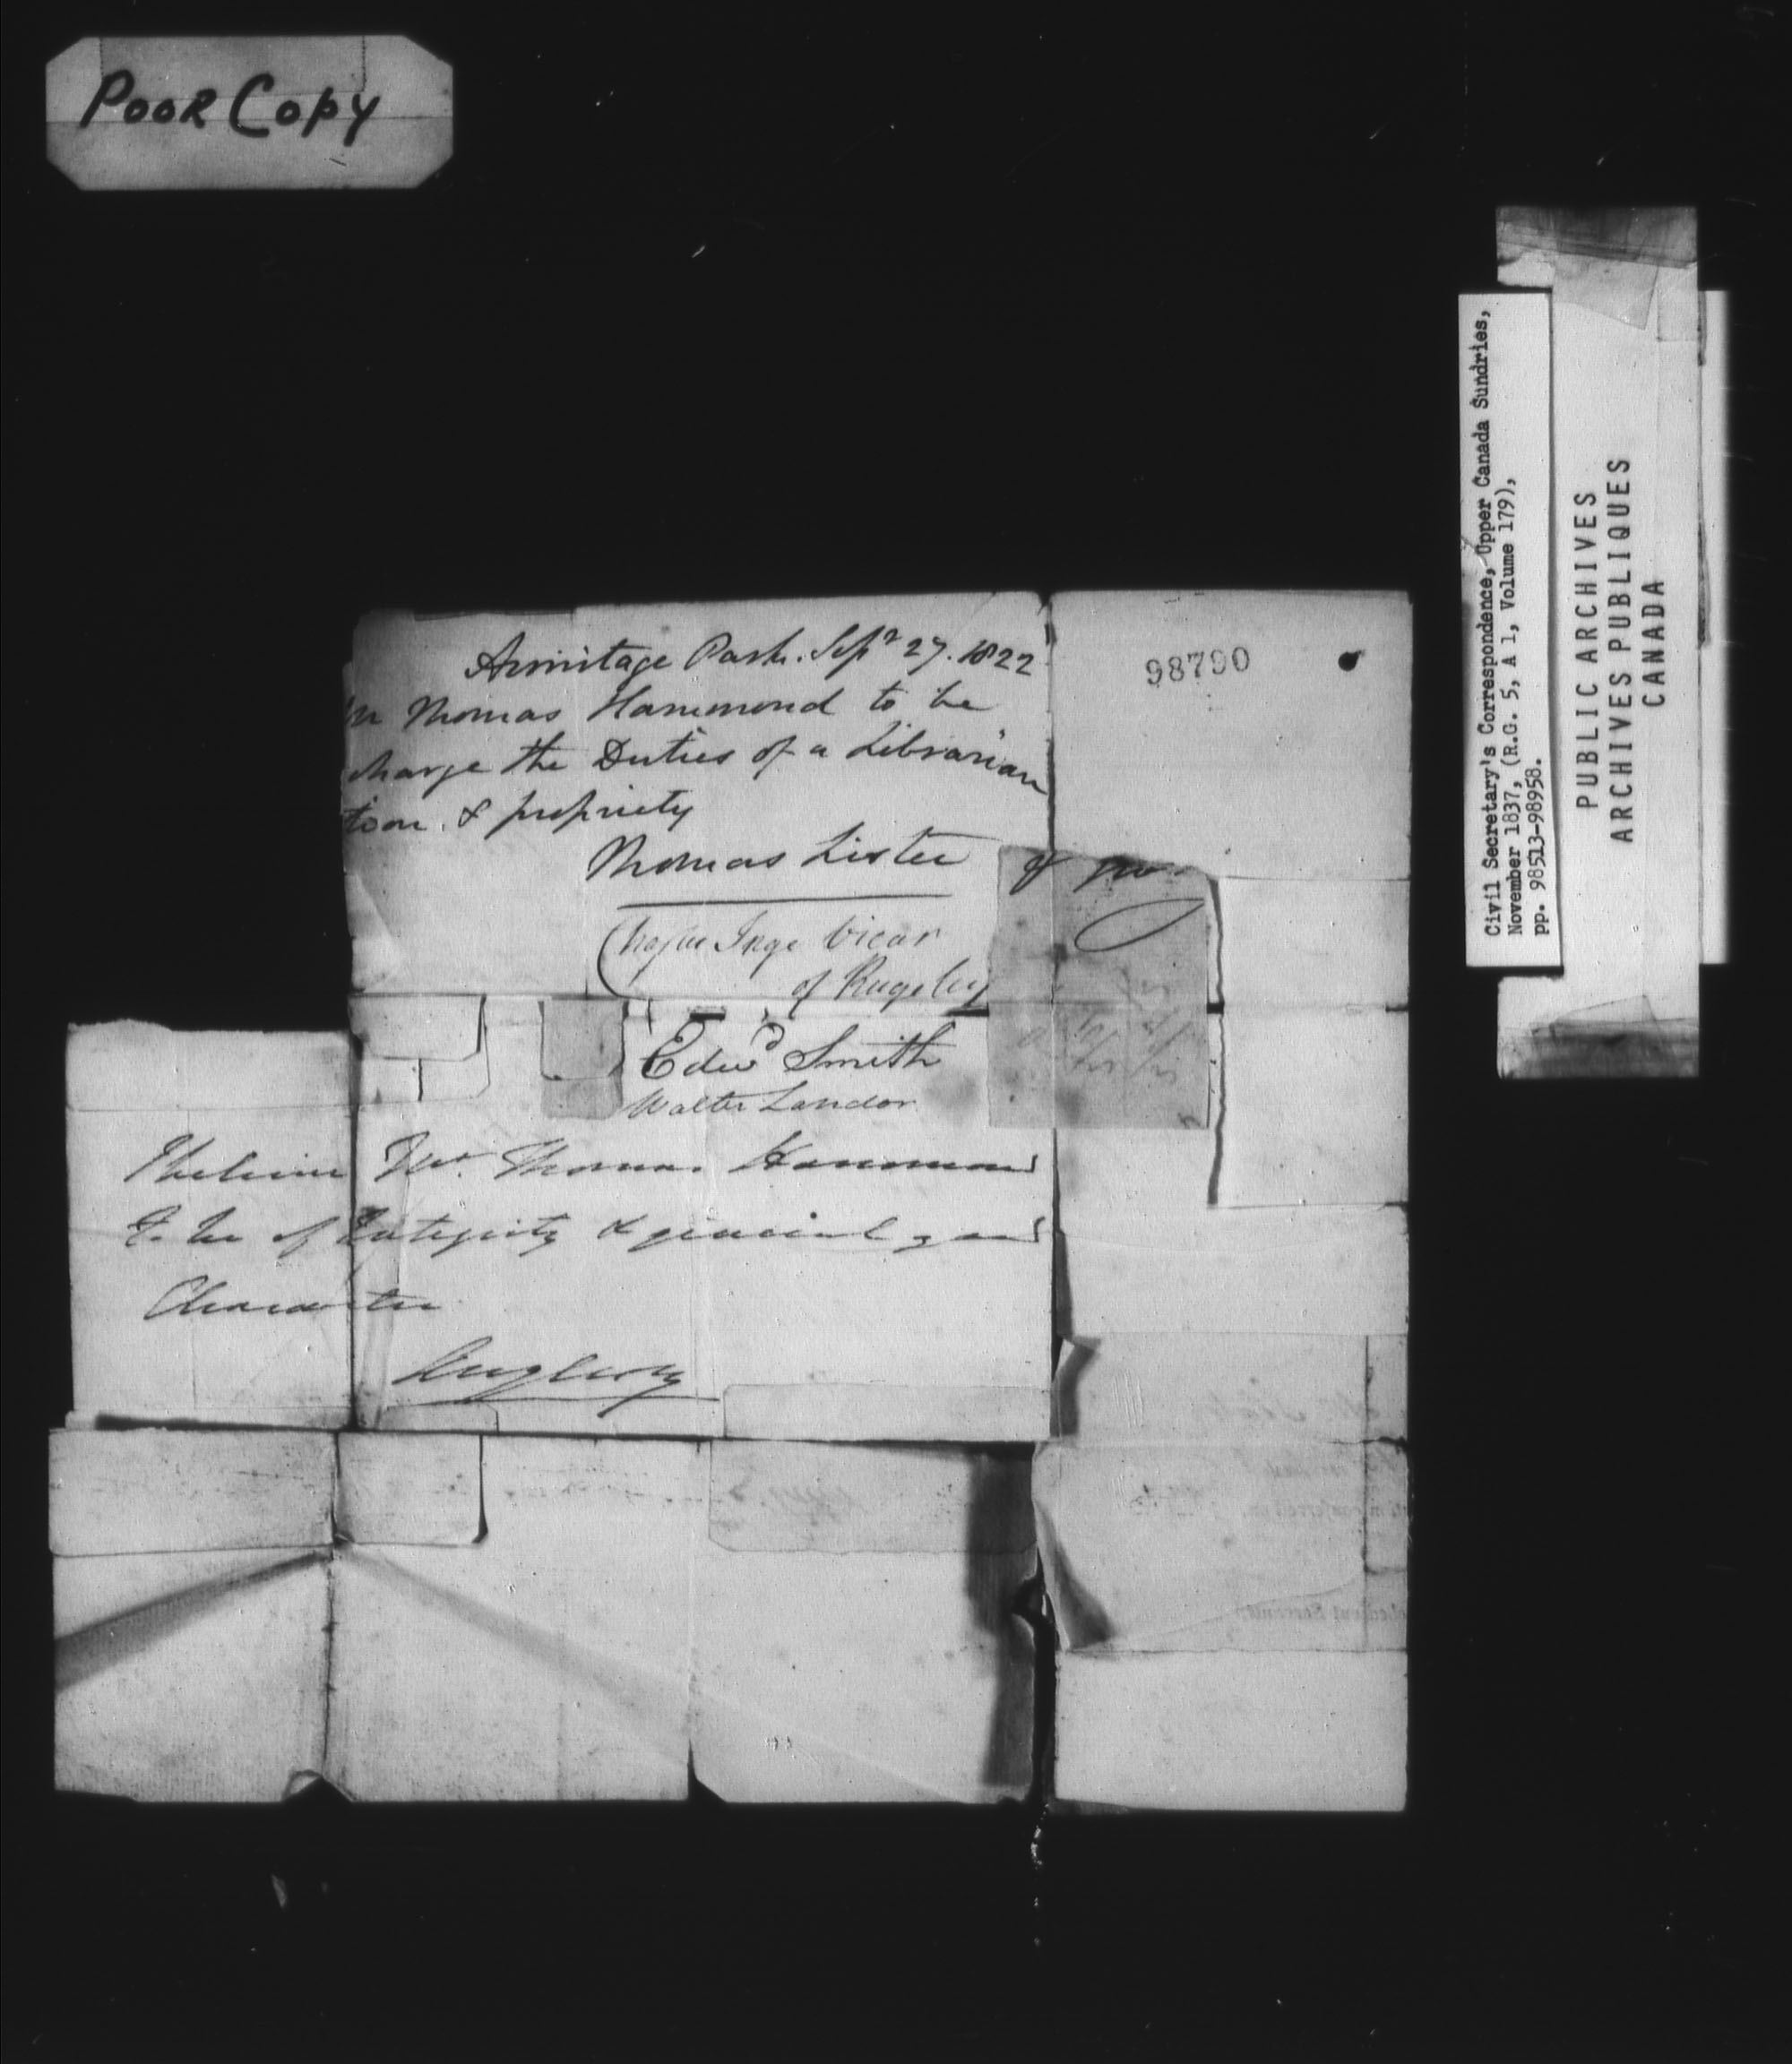 Poor Copy
Armitage Park. Sepr 27. 1822
98790
Mr Thomas Hammond to be
charge the Duties of a Librarian
tion & propriety
Thomas Lister
of
Inge Vicar
of Rugeley
Edwd Smith
Walter Landor
I believe Mr. Thomas Hammond
to be of Integrity & general good
Character
Anglesey
Civil Secretary's Correspondence, Upper Canada Sundries,
November 1837, (R.G. 5, A 1, Volume 179),
pp. 98513-98958.
PUBLIC ARCHIVES
ARCHIVES PUBLIQUES
CANADA